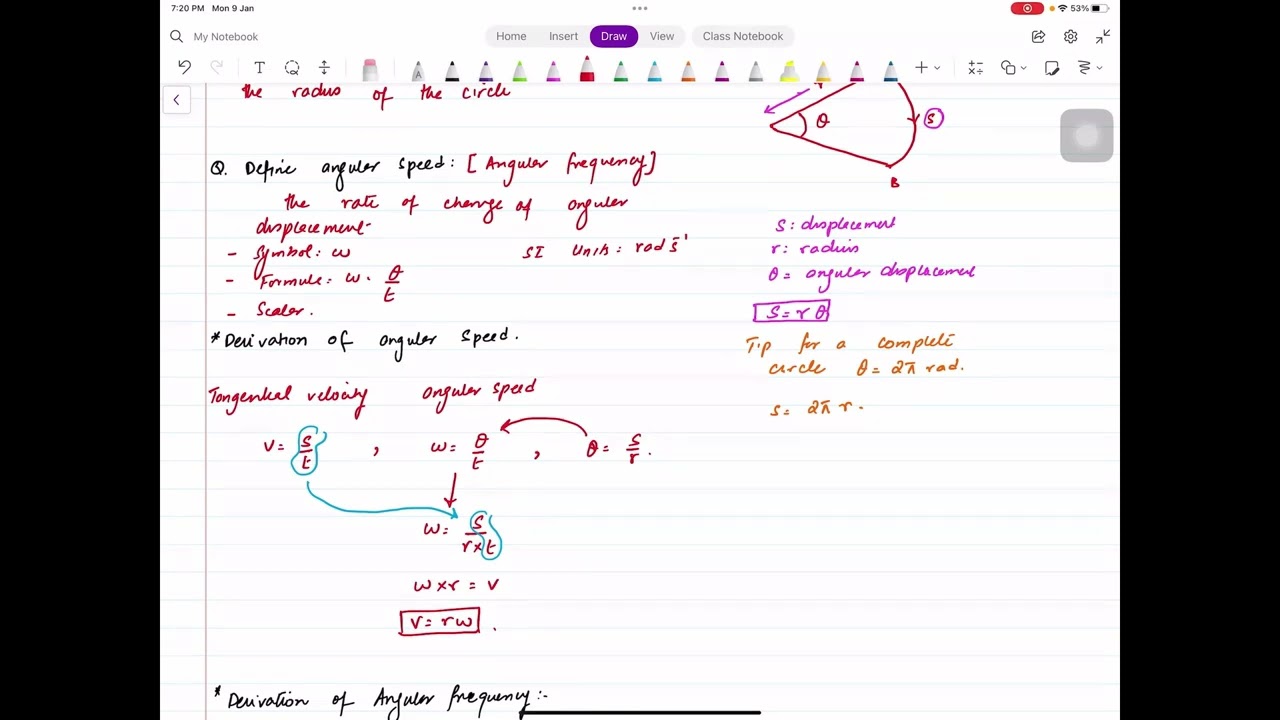 7:20 PM Mon 9 Jan
53%
My Notebook
Home Insert Draw View Class Notebook
the radius of the circle
θ
S
B
Q. Define angular speed: [Angular frequency]
the rate of change of angular
displacement.
- Symbol: ω
SI Units: rad s⁻¹
- Formula: ω = θ/t
- Scalar.
* Derivation of angular speed.
Tangential velocity angular speed
v = s/t , ω = θ/t , θ = s/r .
ω = s/r×t
ω×r = v
v = rω .
* Derivation of Angular frequency:-
S: displacement
r: radius
θ = angular displacement
S = r θ
Tip for a complete
circle θ = 2π rad.
s = 2π r.